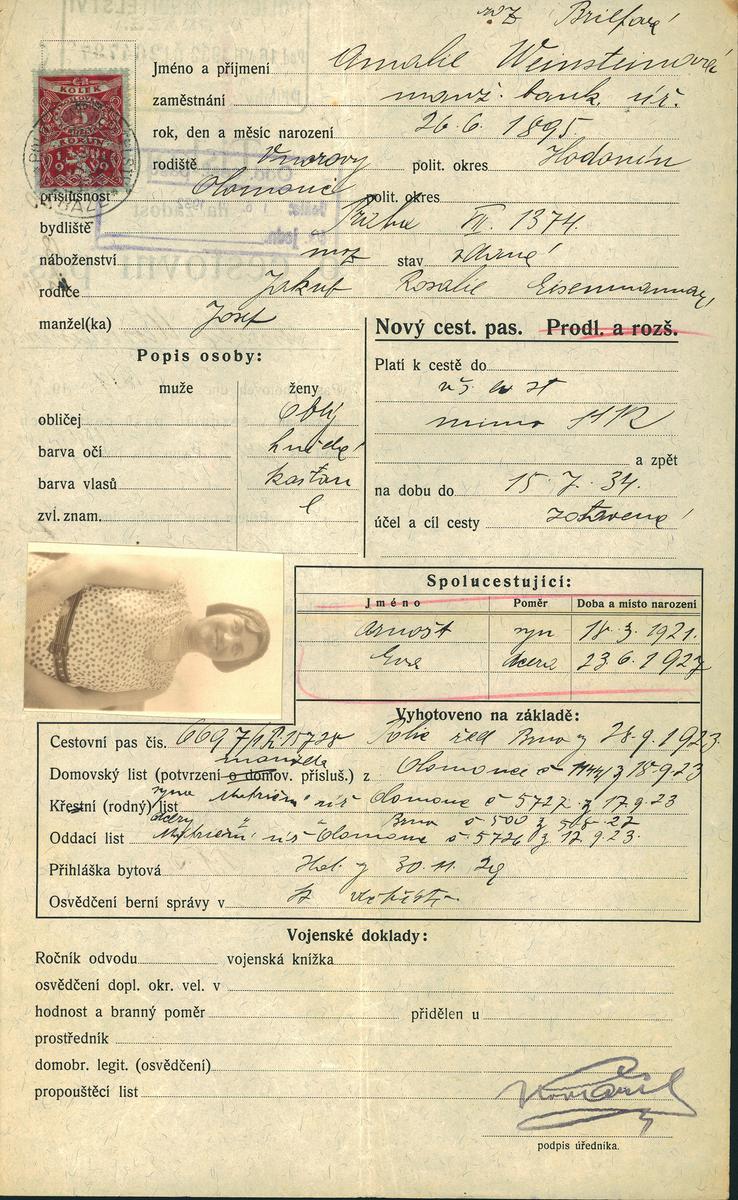 roz
Jméno a příjmení Amalie Weinsteinová
zaměstnání manž. bank. úř.
rok, den a měsíc narození 26.6. 1895
KOLEK
5
rodiště Vnorovy polit. okres Hodonín
příslušnost Olomouc polit. okres
bydliště Praha VII. 1374.
náboženství moz stav vdaná
rodiče Jakub Rosalie
manžel(ka) Josef
Nový cest. pas. Prodl. a rozš.
Popis osoby:
Platí k cestě do
muže ženy
vš. ev st
obličej oblý
mimo
barva očí hnědé
a zpět
barva vlasů kaštan
na dobu do 15. 7. 34.
zvl. znam.
účel a cíl cesty zotavená
Spolucestující:
Jméno Poměr Doba a místo narození
Arnošt syn 18. 3. 1921.
Eva dcera 23. 6. 1927
Vyhotoveno na základě:
Cestovní pas čis. Brno z 28.9.1923
manžela
Domovský list (potvrzení o domov. přísluš.) z Olomouce č z 18.9.23
syna
Křestní (rodný) list úř Olomouc č 5727 z 17.9.23
dcery " " Brno č 500 z
Oddací list úř Olomouc č 5726 z 17.9.23.
Přihláška bytová Hol. z 30. 11. 29
Osvědčení berní správy v
Vojenské doklady:
Ročník odvodu vojenská knížka
osvědčení dopl. okr. vel. v
hodnost a branný poměr přidělen u
prostředník
domobr. legit. (osvědčení)
propouštěcí list
podpis úředníka.